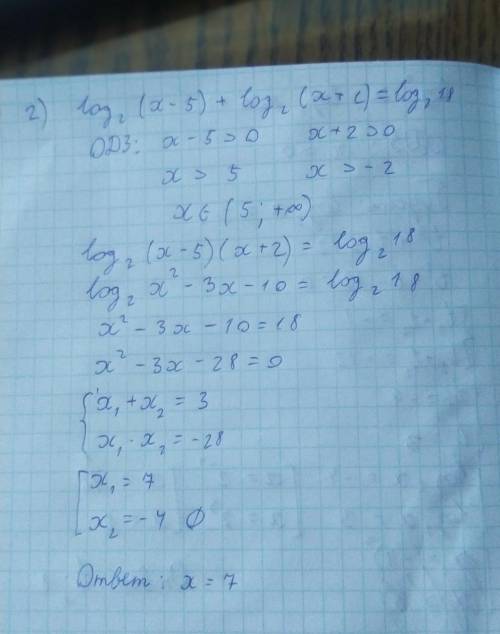 2) log₂ (x - 5) + log₂ (x + 2) = log₂ 18
ОДЗ: x - 5 > 0 x + 2 > 0
x > 5 x > - 2
x ∈ (5 ; +∞)
log₂ (x - 5) (x + 2) = log₂ 18
log₂ x² - 3x - 10 = log₂ 18
x² - 3x - 10 = 18
x² - 3x - 28 = 0
{ x₁ + x₂ = 3
x₁ · x₂ = -28
[ x₁ = 7
x₂ = - 4 ∅
Ответ: x = 7